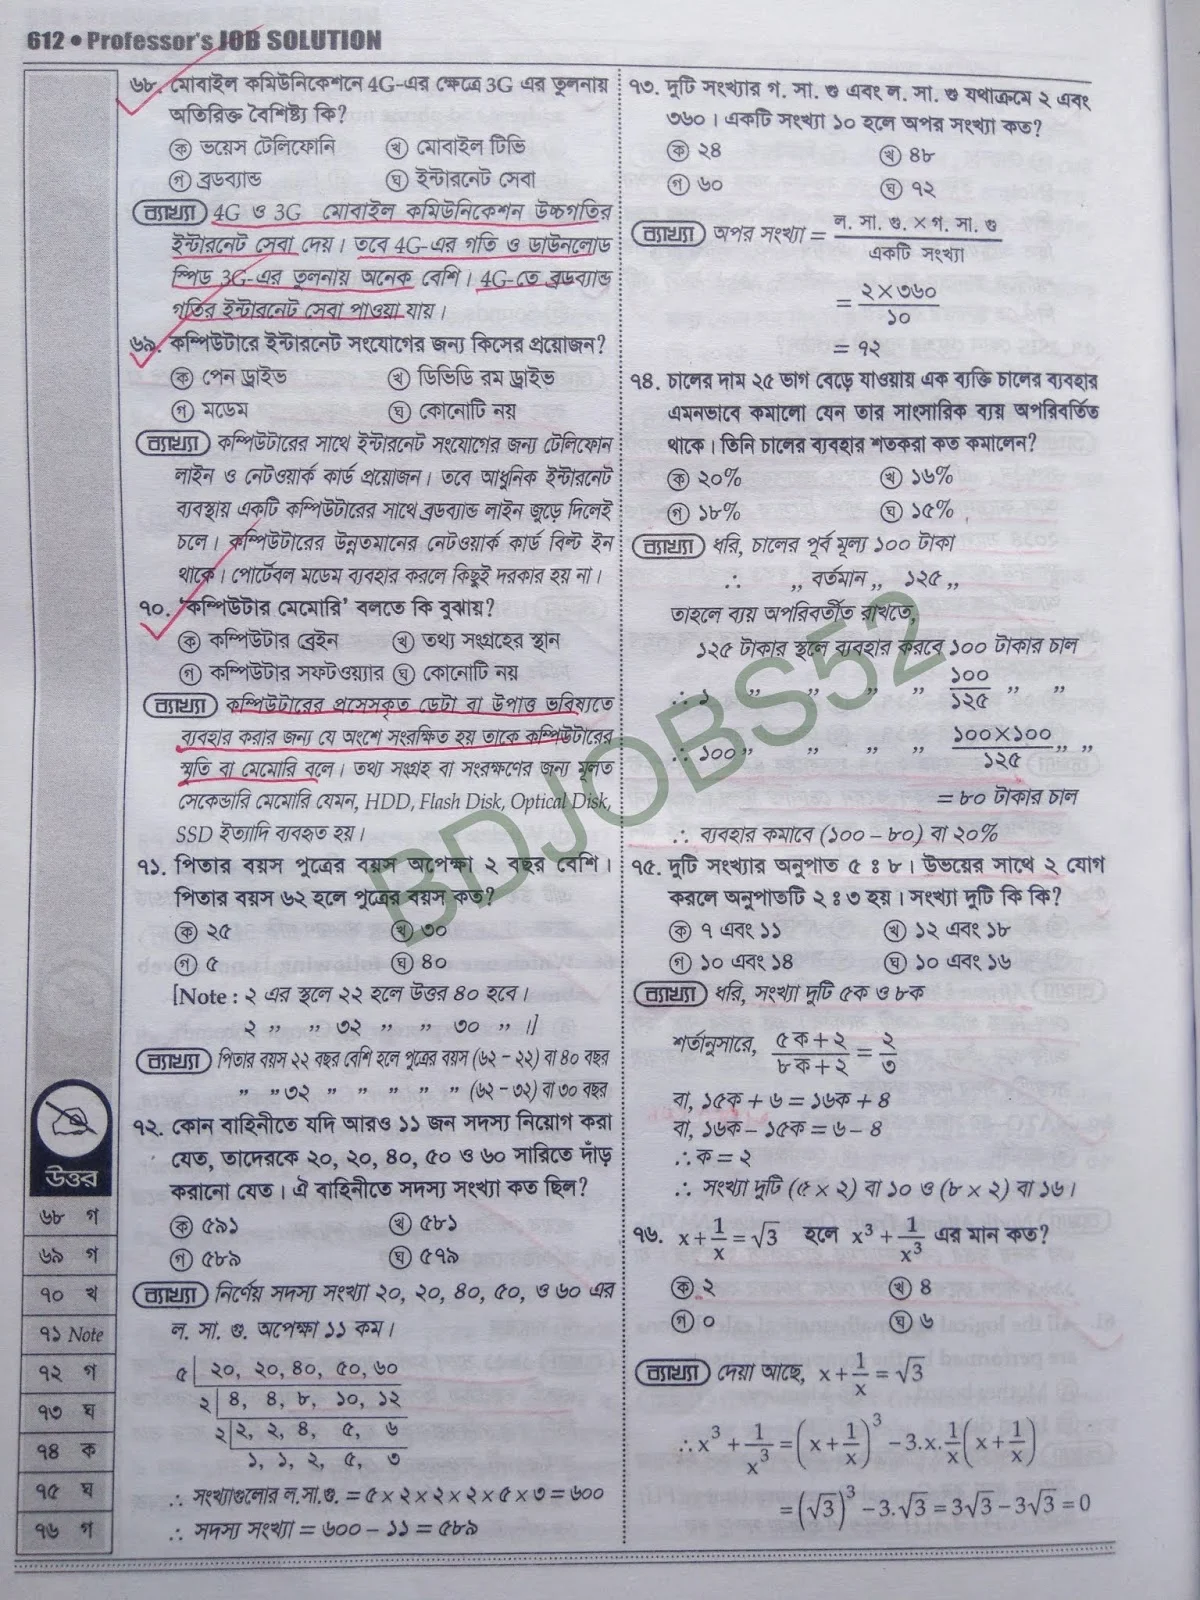 612 • Professor's JOB SOLUTION
৬৮. মোবাইল কমিউনিকেশনে 4G-এর ক্ষেত্রে 3G এর তুলনায়
অতিরিক্ত বৈশিষ্ট্য কি?
ক ভয়েস টেলিফোনি খ মোবাইল টিভি
গ ব্রডব্যান্ড ঘ ইন্টারনেট সেবা
ব্যাখ্যা 4G ও 3G মোবাইল কমিউনিকেশন উচ্চগতির
ইন্টারনেট সেবা দেয়। তবে 4G-এর গতি ও ডাউনলোড
স্পিড 3G-এর তুলনায় অনেক বেশি। 4G-তে ব্রডব্যান্ড
গতির ইন্টারনেট সেবা পাওয়া যায়।
৬৯. কম্পিউটারে ইন্টারনেট সংযোগের জন্য কিসের প্রয়োজন?
ক পেন ড্রাইভ খ ডিভিডি রম ড্রাইভ
গ মডেম ঘ কোনোটি নয়
ব্যাখ্যা কম্পিউটারের সাথে ইন্টারনেট সংযোগের জন্য টেলিফোন
লাইন ও নেটওয়ার্ক কার্ড প্রয়োজন। তবে আধুনিক ইন্টারনেট
ব্যবস্থায় একটি কম্পিউটারের সাথে ব্রডব্যান্ড লাইন জুড়ে দিলেই
চলে। কম্পিউটারের উন্নতমানের নেটওয়ার্ক কার্ড বিল্ট ইন
থাকে। পোর্টেবল মডেম ব্যবহার করলে কিছুই দরকার হয় না।
৭০. 'কম্পিউটার মেমোরি' বলতে কি বুঝায়?
ক কম্পিউটার ব্রেইন খ তথ্য সংগ্রহের স্থান
গ কম্পিউটার সফটওয়্যার ঘ কোনোটি নয়
ব্যাখ্যা কম্পিউটারের প্রসেসকৃত ডেটা বা উপাত্ত ভবিষ্যতে
ব্যবহার করার জন্য যে অংশে সংরক্ষিত হয় তাকে কম্পিউটারের
স্মৃতি বা মেমোরি বলে। তথ্য সংগ্রহ বা সংরক্ষণের জন্য মূলত
সেকেন্ডারি মেমোরি যেমন, HDD, Flash Disk, Optical Disk,
SSD ইত্যাদি ব্যবহৃত হয়।
৭১. পিতার বয়স পুত্রের বয়স অপেক্ষা ২ বছর বেশি।
পিতার বয়স ৬২ হলে পুত্রের বয়স কত?
ক ২৫ খ ৩০
গ ৫ ঘ ৪০
[Note : ২ এর স্থলে ২২ হলে উত্তর ৪০ হবে।
২ ,, ,, ৩২ ,, ,, ৩০ ,, ।]
ব্যাখ্যা পিতার বয়স ২২ বছর বেশি হলে পুত্রের বয়স (৬২ – ২২) বা ৪০ বছর
,, ,, ৩২ ,, ,, ,, ,, ,, (৬২ – ৩২) বা ৩০ বছর
৭২. কোন বাহিনীতে যদি আরও ১১ জন সদস্য নিয়োগ করা
যেত, তাদেরকে ২০, ২০, ৪০, ৫০ ও ৬০ সারিতে দাঁড়
করানো যেত। ঐ বাহিনীতে সদস্য সংখ্যা কত ছিল?
ক ৫৯১ খ ৫৮১
গ ৫৮৯ ঘ ৫৭৯
ব্যাখ্যা নির্ণেয় সদস্য সংখ্যা ২০, ২০, ৪০, ৫০, ও ৬০ এর
ল. সা. গু. অপেক্ষা ১১ কম।
৫ | ২০, ২০, ৪০, ৫০, ৬০
২ | ৪, ৪, ৮, ১০, ১২
২ | ২, ২, ৪, ৫, ৬
১, ১, ২, ৫, ৩
∴ সংখ্যাগুলোর ল.সা.গু. = ৫ × ২ × ২ × ২ × ৫ × ৩ = ৬০০
∴ সদস্য সংখ্যা = ৬০০ – ১১ = ৫৮৯
৭৩. দুটি সংখ্যার গ. সা. গু এবং ল. সা. গু যথাক্রমে ২ এবং
৩৬০। একটি সংখ্যা ১০ হলে অপর সংখ্যা কত?
ক ২৪ খ ৪৮
গ ৬০ ঘ ৭২
ব্যাখ্যা অপর সংখ্যা = ল. সা. গু. × গ. সা. গু / একটি সংখ্যা
= ২ × ৩৬০ / ১০
= ৭২
৭৪. চালের দাম ২৫ ভাগ বেড়ে যাওয়ায় এক ব্যক্তি চালের ব্যবহার
এমনভাবে কমালো যেন তার সাংসারিক ব্যয় অপরিবর্তিত
থাকে। তিনি চালের ব্যবহার শতকরা কত কমালেন?
ক ২০% খ ১৬%
গ ১৮% ঘ ১৫%
ব্যাখ্যা ধরি, চালের পূর্ব মূল্য ১০০ টাকা
∴ ,, বর্তমান ,, ১২৫ ,,
তাহলে ব্যয় অপরিবর্তীত রাখতে,
১২৫ টাকার স্থলে ব্যবহার করবে ১০০ টাকার চাল
∴ ১ ,, ,, ,, ,, ১০০ / ১২৫ ,, ,,
∴ ১০০ ,, ,, ,, ,, ১০০ × ১০০ / ১২৫ ,, ,,
= ৮০ টাকার চাল
∴ ব্যবহার কমাবে (১০০ – ৮০) বা ২০%
৭৫. দুটি সংখ্যার অনুপাত ৫ ঃ ৮। উভয়ের সাথে ২ যোগ
করলে অনুপাতটি ২ ঃ ৩ হয়। সংখ্যা দুটি কি কি?
ক ৭ এবং ১১ খ ১২ এবং ১৮
গ ১০ এবং ১৪ ঘ ১০ এবং ১৬
ব্যাখ্যা ধরি, সংখ্যা দুটি ৫ক ও ৮ক
শর্তানুসারে, ৫ক + ২ / ৮ক + ২ = ২ / ৩
বা, ১৫ক + ৬ = ১৬ক + ৪
বা, ১৬ক – ১৫ক = ৬ – ৪
∴ ক = ২
∴ সংখ্যা দুটি (৫ × ২) বা ১০ ও (৮ × ২) বা ১৬।
৭৬. x + 1/x = √3 হলে x³ + 1/x³ এর মান কত?
ক ২ খ ৪
গ ০ ঘ ৬
ব্যাখ্যা দেয়া আছে, x + 1/x = √3
∴ x³ + 1/x³ = (x + 1/x)³ – 3.x.1/x (x + 1/x)
= (√3)³ – 3.√3 = 3√3 – 3√3 = 0
উত্তর
৬৮ গ
৬৯ গ
৭০ খ
৭১ Note
৭২ গ
৭৩ ঘ
৭৪ ক
৭৫ ঘ
৭৬ গ
BDJOBS52